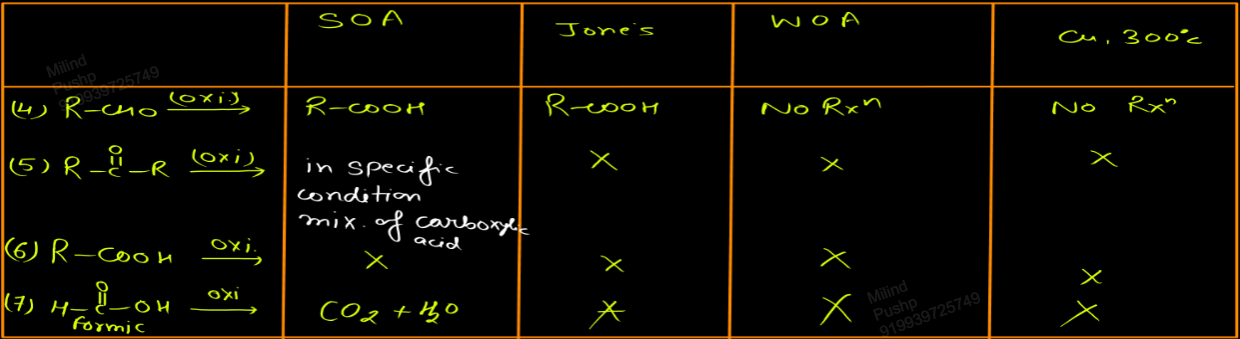 SOA Jone's WOA Cu, 300°c
(4) R-CHO (oxi.) R-COOH R-COOH No Rxⁿ No Rxⁿ
O
(5) R-C-R (oxi) in specific X X X
condition
mix. of carboxylic
acid
(6) R-COOH oxi. X X X X
O
(7) H-C-OH oxi CO2 + H2O X X X
Formic
Milind
Pushp
919939725749
Milind
Pushp
919939725749